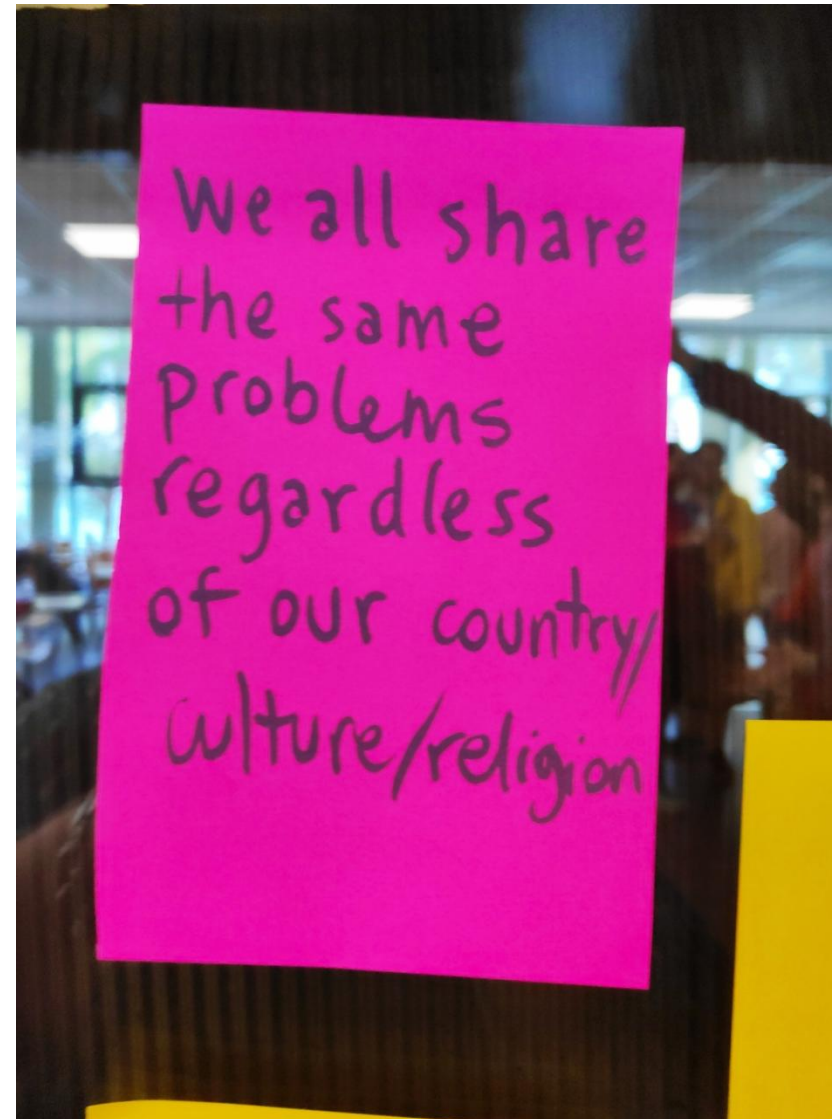 We all share
the same
problems
regardless
of our country/
culture/religion